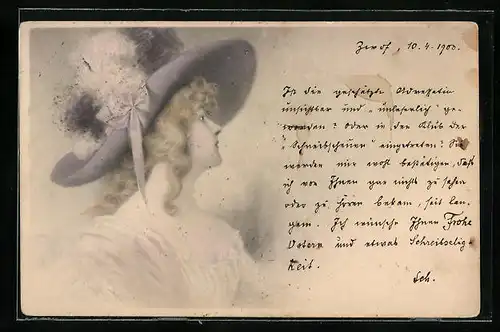 Zwros, 10.4.1900.
Ist die geschätzte Adressatin
unsichtbar und "unleserlich" ge-
worden? Oder in den Klub der
"Schreibscheuen" eingetreten? Sie
werden mir wohl bestätigen, daß
ich von Ihnen gar nichts zu sehen
oder zu hören bekam, seit lan-
gem. Ich wünsche Ihnen Frohe
Ostern und etwas Schreibselig-
keit.
Sch.